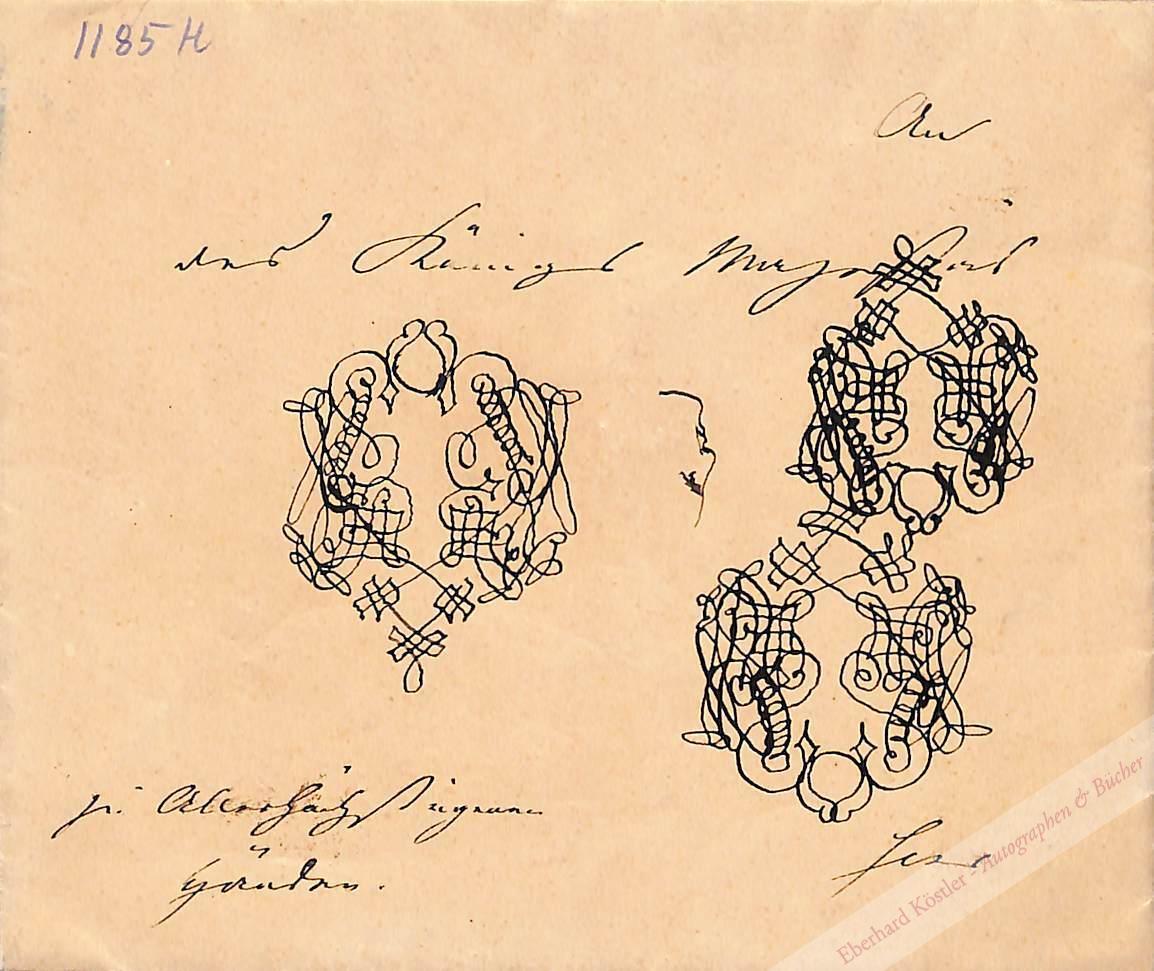 1185 H
An
des Königs Majestät
zu Allerhöchsteigenen
Händen.
Eberhard Köstler - Autographen & Bücher